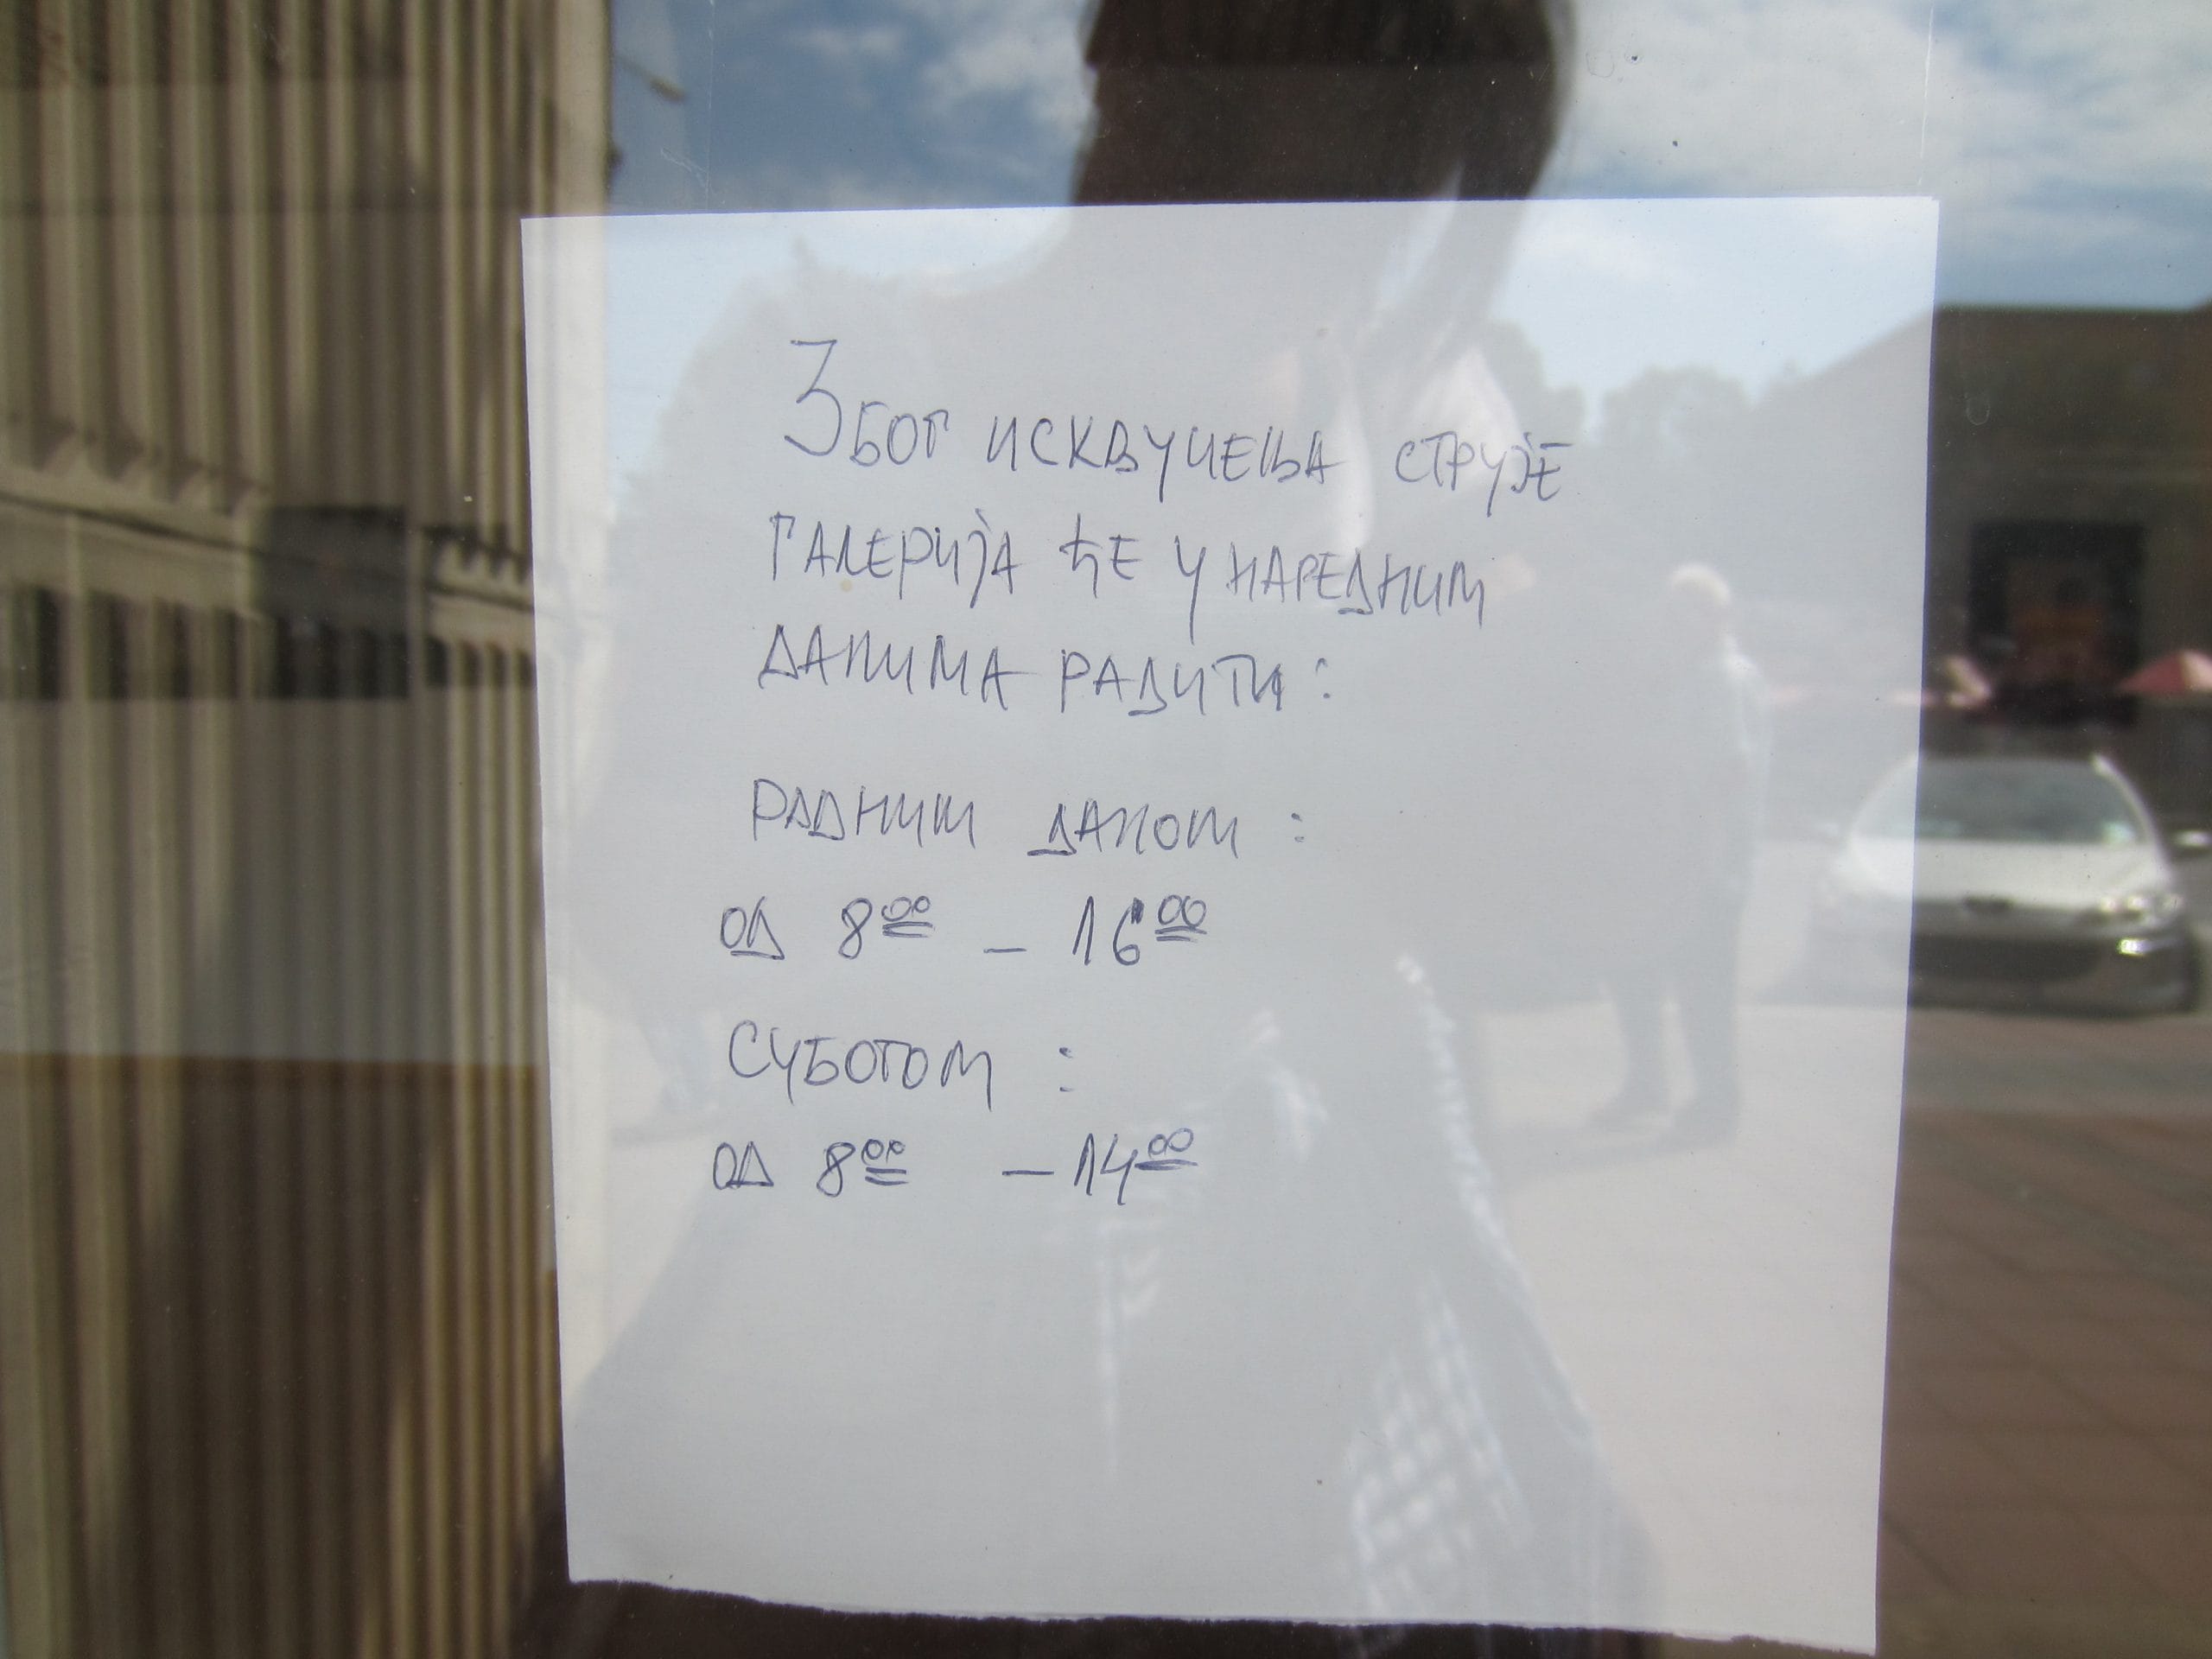 Због искључења струје
галерија ће у наредним
данима радити:
радним даном:
од 8⁰⁰ – 16⁰⁰
суботом:
од 8⁰⁰ – 14⁰⁰